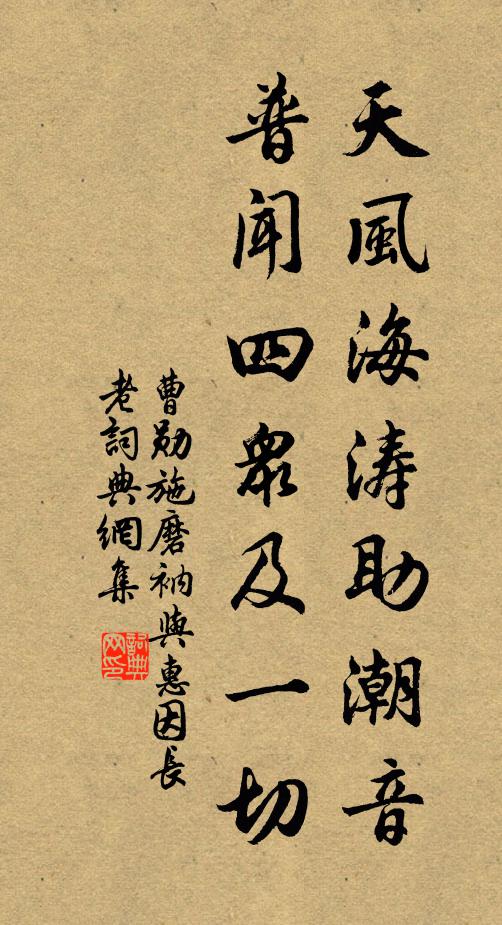 天風海涛助潮音
普聞四眾及一切
曹勛施磨衲與惠因長
老詞典網集
詞典网印